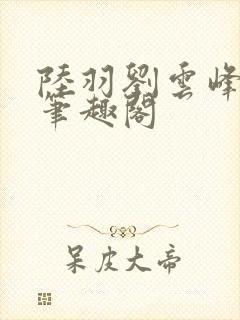 陸羽劉雲峰
筆趣閣
呆皮大帝